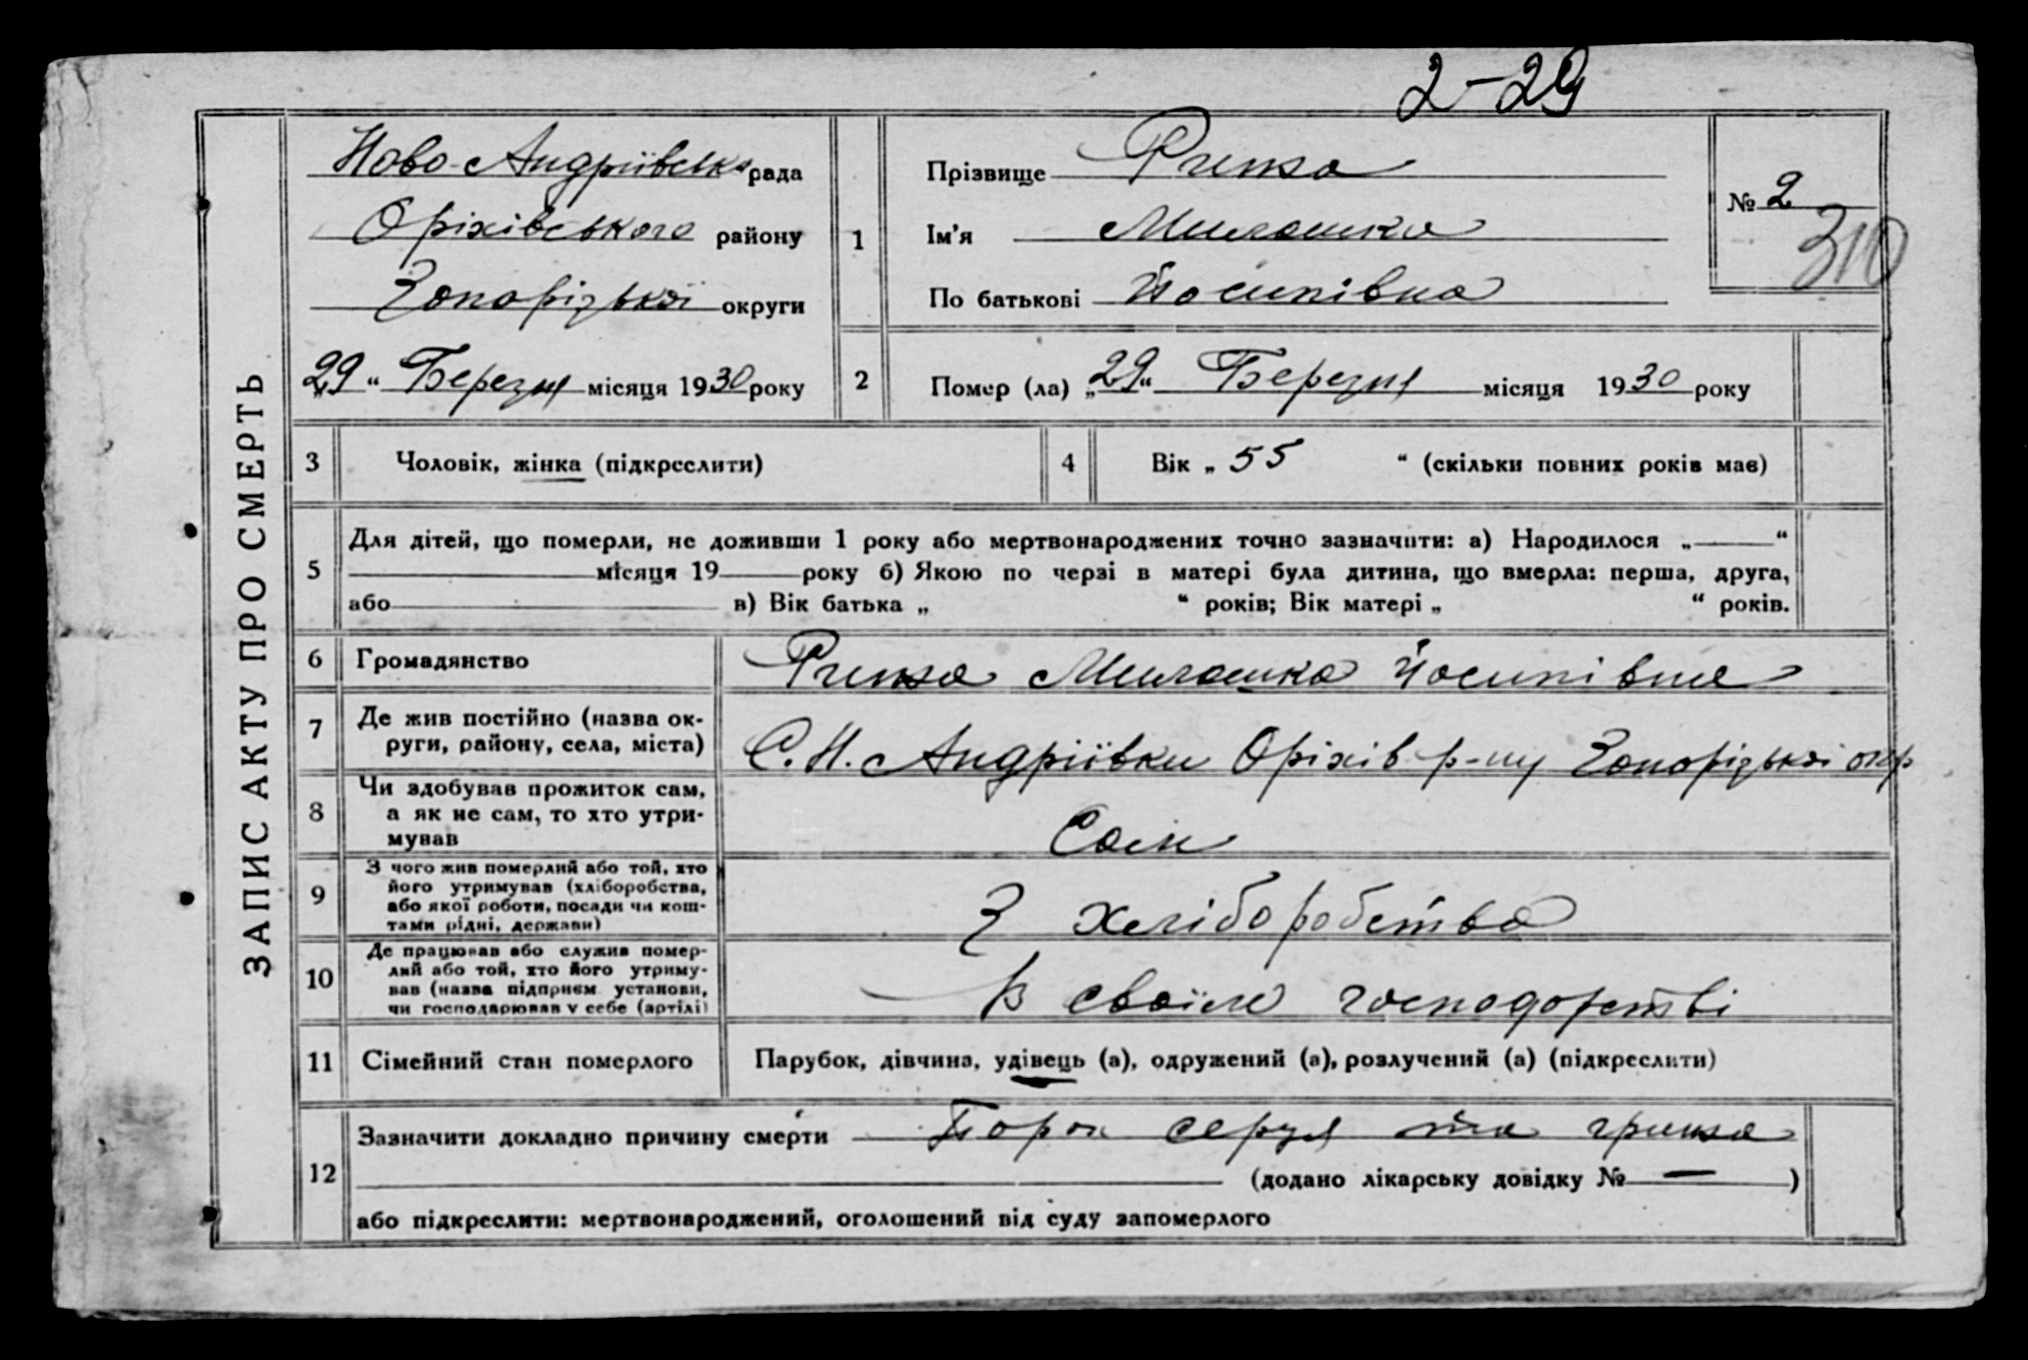 2-29
ЗАПИС АКТУ ПРО СМЕРТЬ
Ново-Андріївська рада
Оріхівського району
Запорізької округи
„29“ Березня місяця 1930 року
1
Прізвище
Ім'я Милашка
По батькові Йосипівна
№ 2
310
2 Помер (ла) „29“ Березня місяця 1930 року
3 Чоловік, жінка (підкреслити)
4 Вік „55“ (скільки повних років має)
5 Для дітей, що померли, не доживши 1 року або мертвонароджених точно зазначити: а) Народилося „—“
місяця 19 року б) Якою по черзі в матері була дитина, що вмерла: перша, друга,
або в) Вік батька „ “ років; Вік матері „ “ років.
6 Громадянство Милашка Йосипівна
7 Де жив постійно (назва ок-
руги, району, села, міста)
С. Н. Андріївки Оріхів р-ну Запорізької окр
8 Чи здобував прожиток сам,
а як не сам, то хто утри-
мував
Сам
9 З чого жив померлий або той, хто
його утримував (хліборобства,
або якої роботи, посади чи кош-
тами рідні, держави)
З хліборобства
10 Де працював або служив помер-
лий або той, хто його утриму-
вав (назва підприєм. установи,
чи господарював у себе (артілі)
В своїм господарстві
11 Сімейний стан померлого Парубок, дівчина, удівець (а), одружений (а), розлучений (а) (підкреслити)
12 Зазначити докладно причину смерти Порок серця та грижа
(додано лікарську довідку № — )
або підкреслити: мертвонароджений, оголошений від суду запомерлого